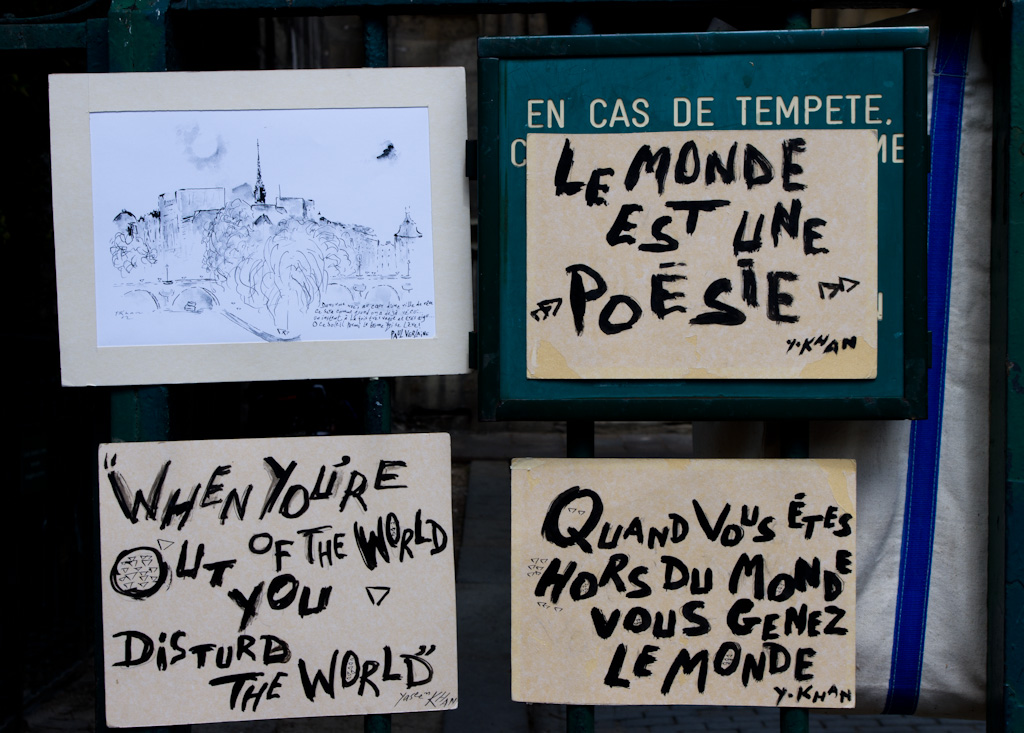 PAUL VERLAINE
EN CAS DE TEMPETE,
C
ME
LE MONDE
EST UNE
POËSIE
Y.KHAN
"WHEN YOU'RE
OUT OF THE WORLD
YOU
DISTURD
THE WORLD"
KHAN
QUAND VOUS ÊTES
HORS DU MONDE
VOUS GENEZ
LE MONDE
Y.KHAN